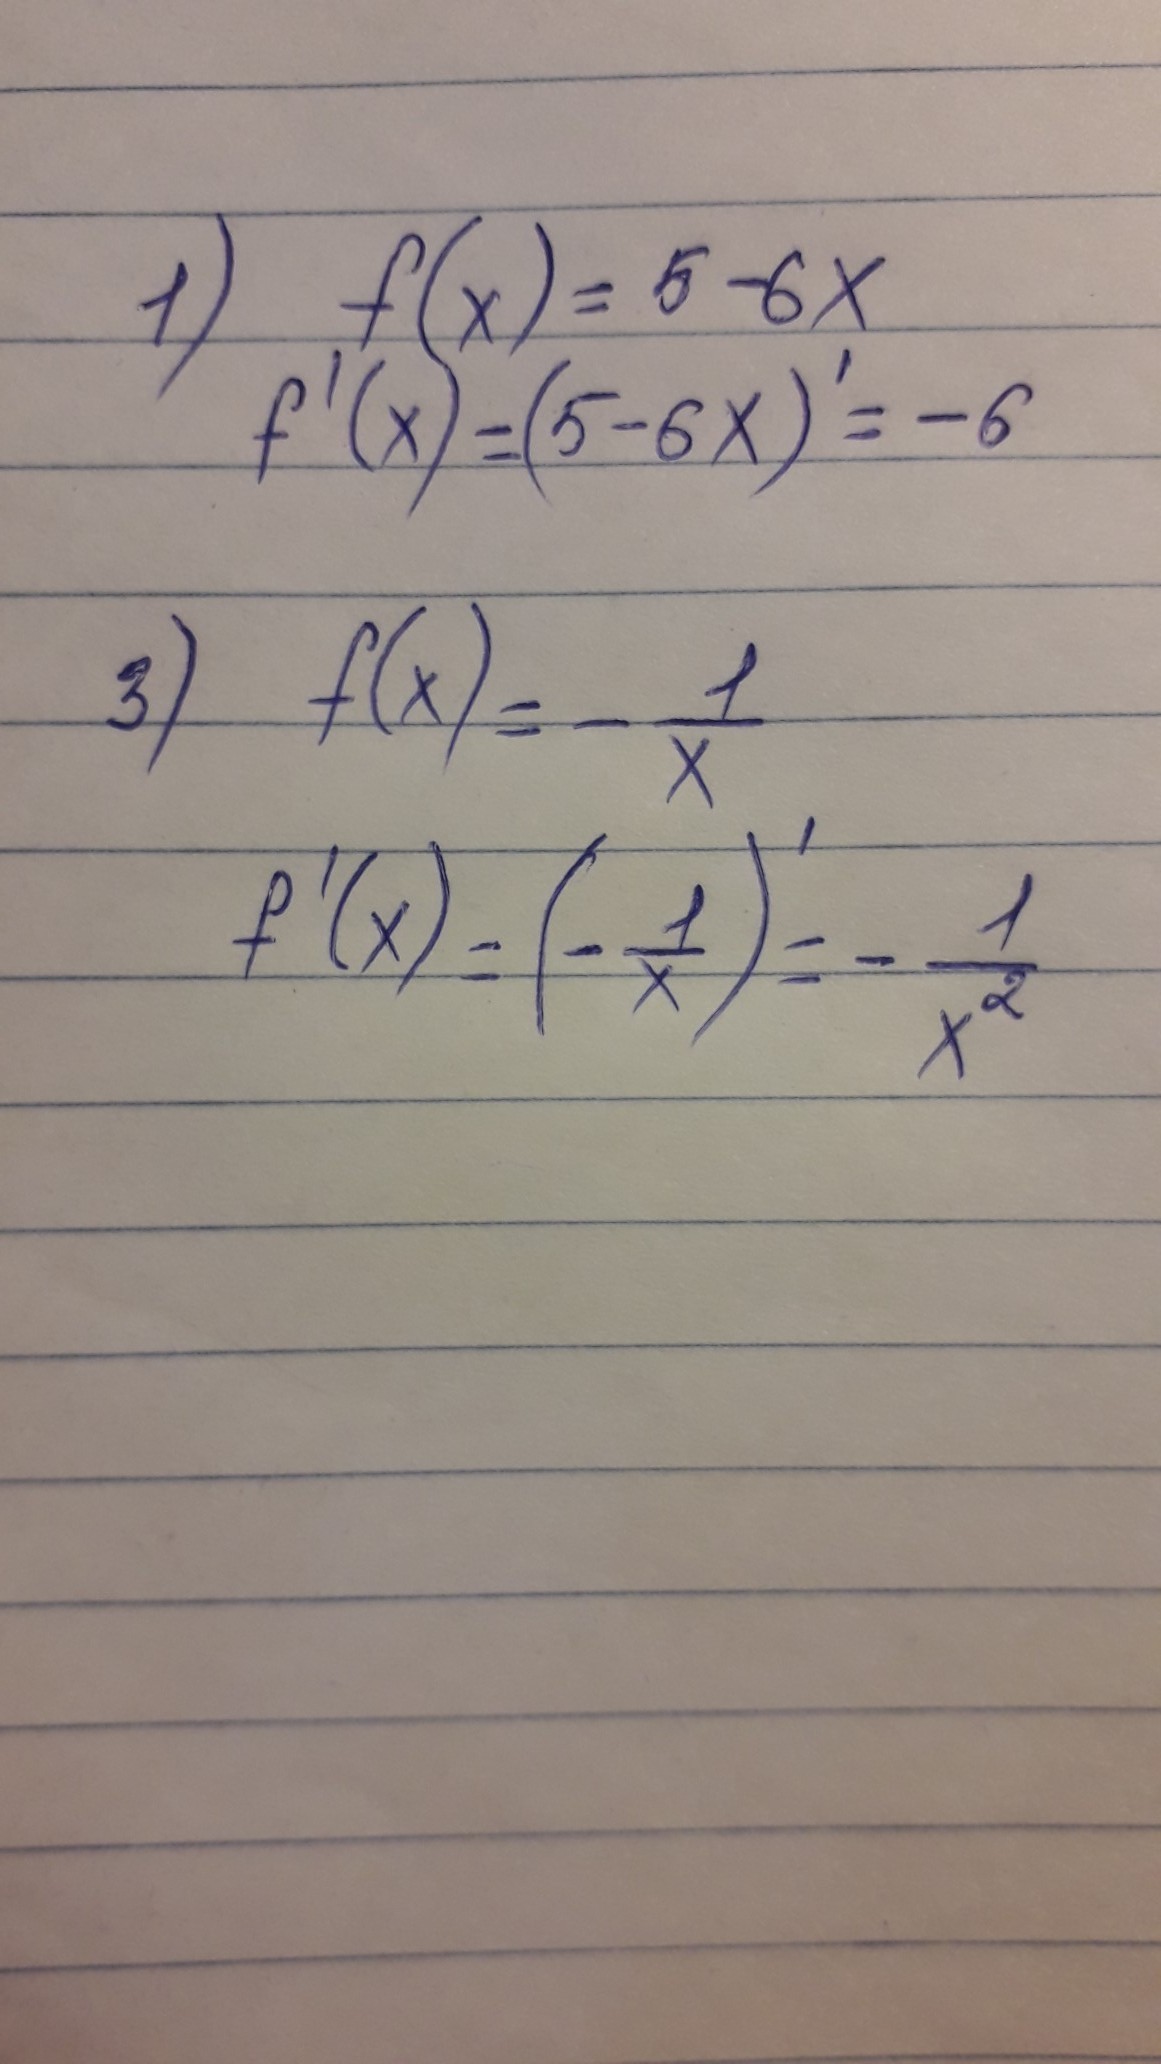 1) f(x) = 5 - 6x
f'(x) = (5 - 6x)' = -6
3) f(x) = - 1/x
f'(x) = (- 1/x)' = - 1/x²